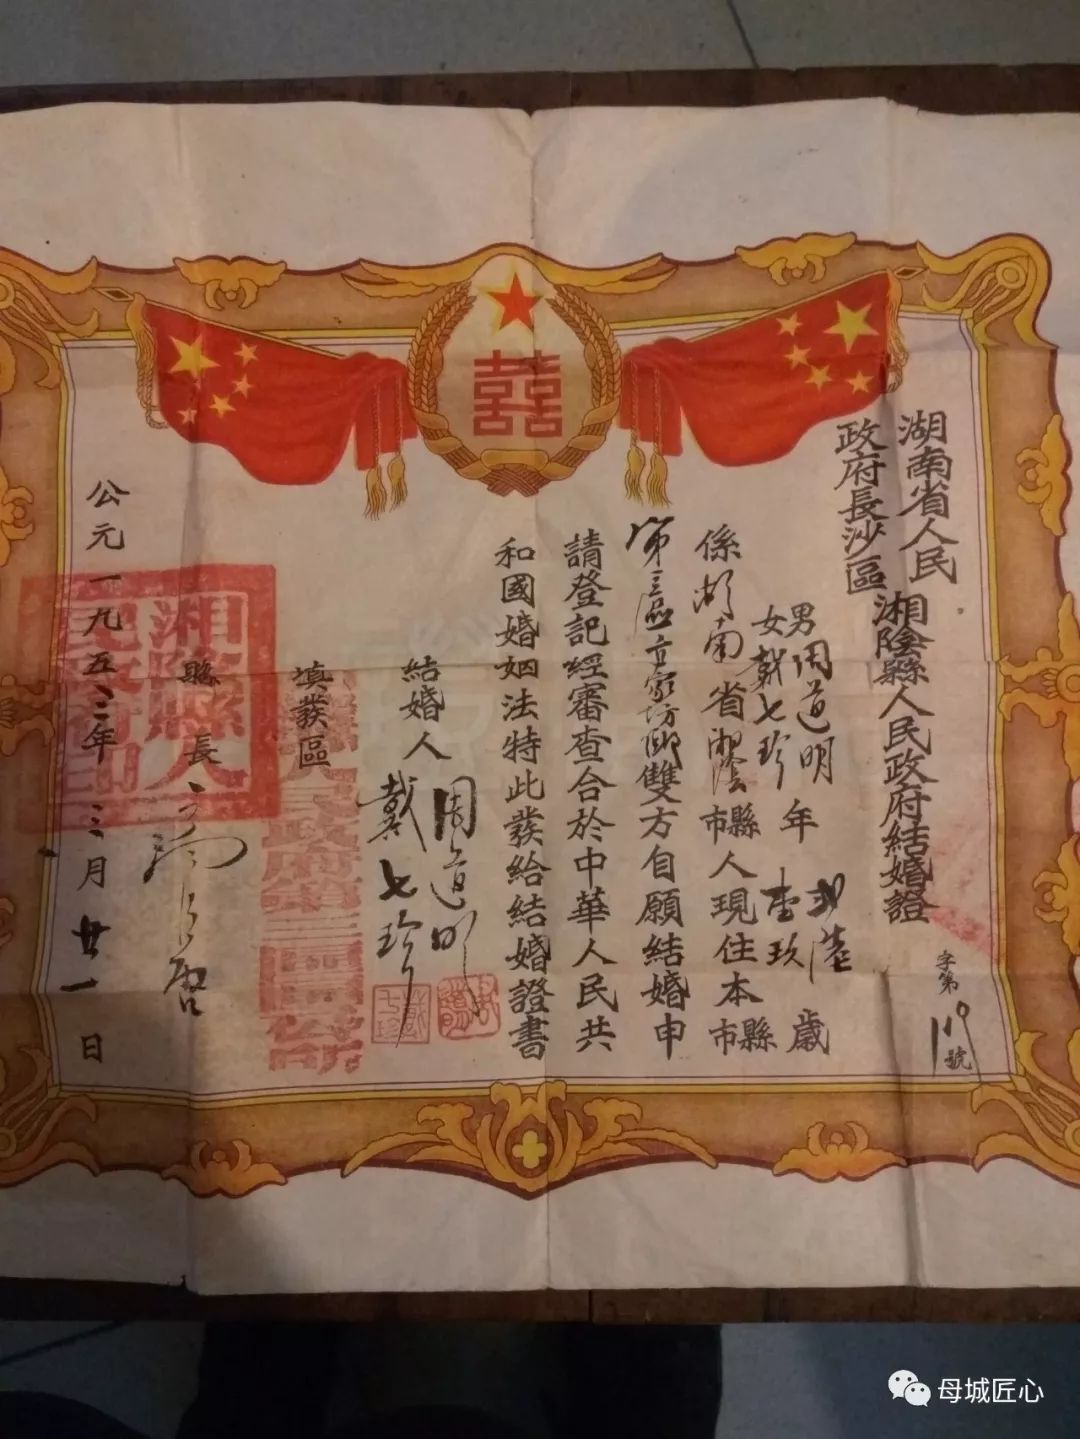 湖南省人民
政府長沙區
湘陰縣人民政府結婚證
字第
號
男周道明
女戴七珍
年
弍陸
壹玖
歲
係湖南省湘陰市縣人現住本市縣
第三區
雙方自願結婚申
請登記經審查合於中華人民共
和國婚姻法特此發給結婚證書
結婚人
周道明
戴七珍
填發區
縣人民政府第三區公所
縣長
湘陰縣人
民政府印
公元一九五三年三月廿一日
囍
母城匠心